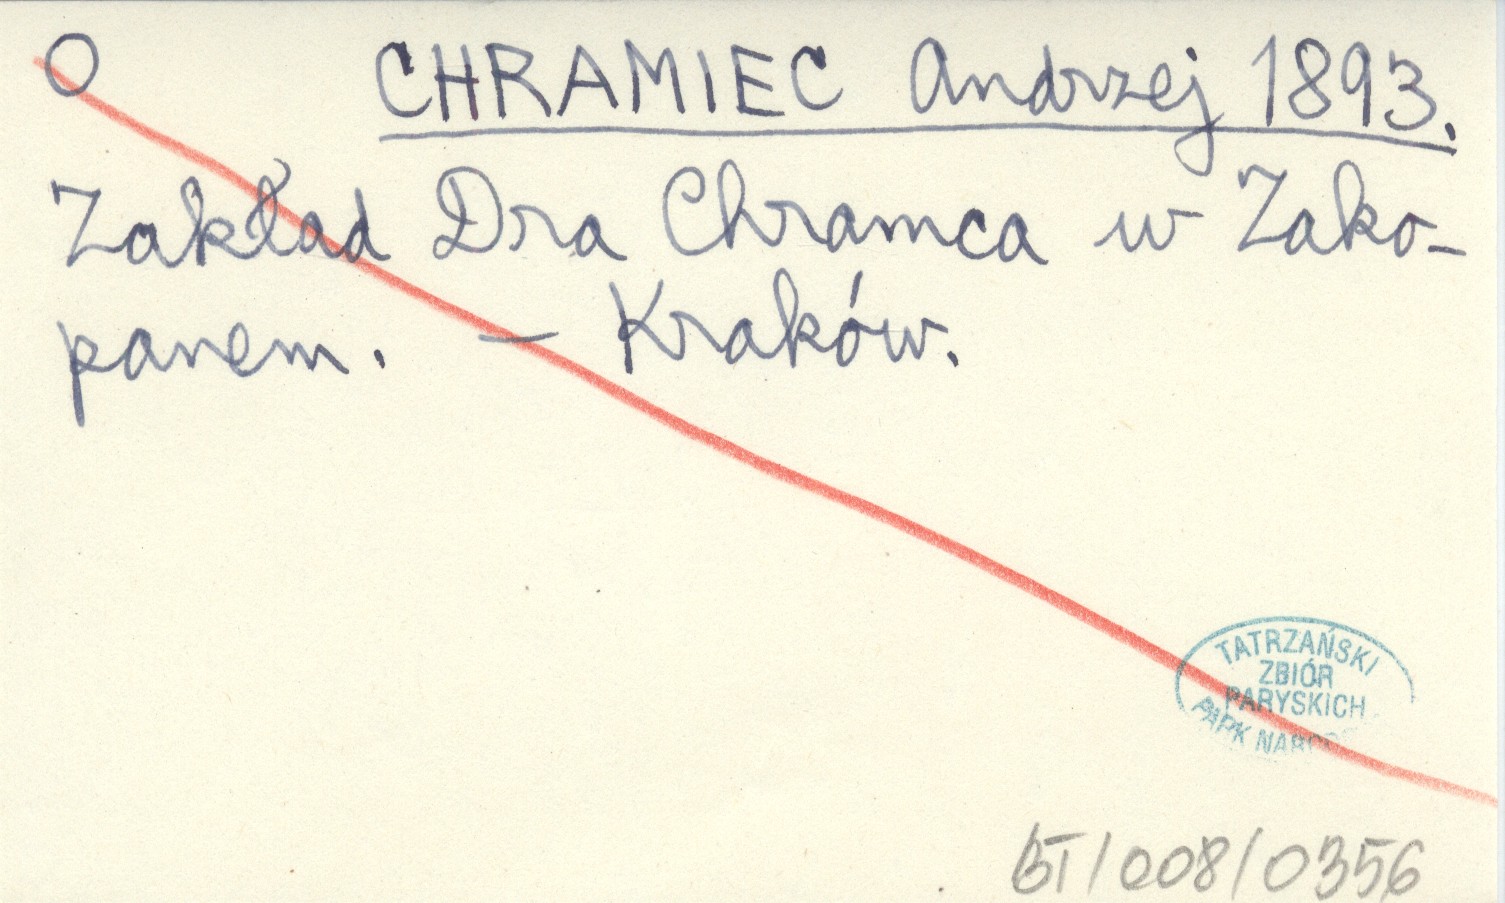 O CHRAMIEC Andrzej 1893.
Zakład Dra Chramca w Zako-
panem. — Kraków.
TATRZAŃSKI
ZBIÓR
PARYSKICH
PARK NARO
BT/008/0356